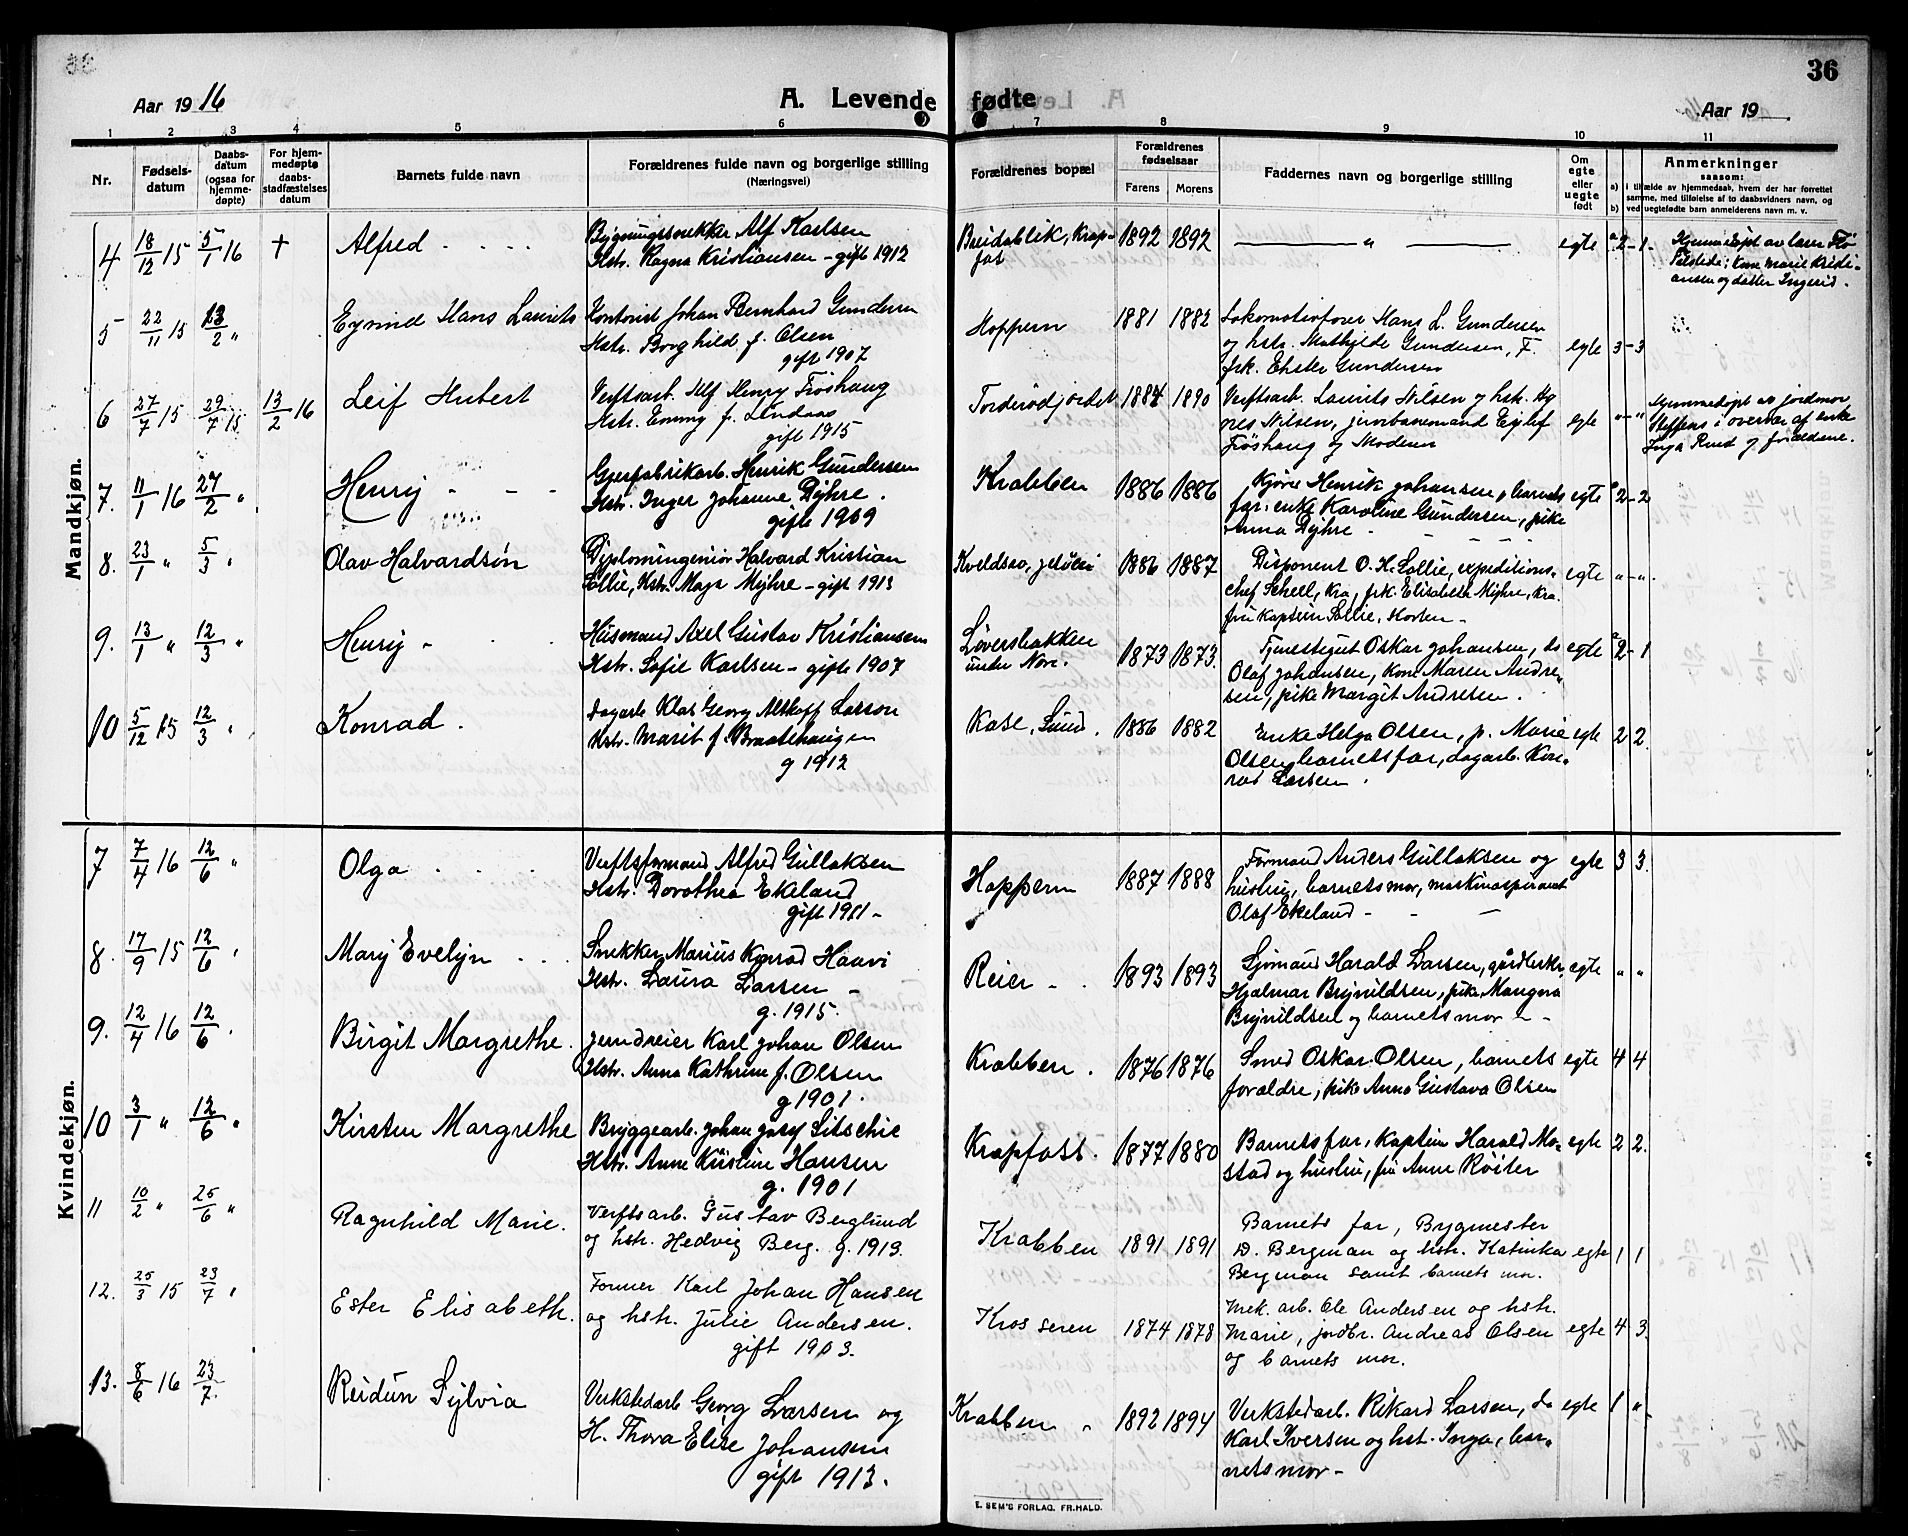 36
Aar 1916
A. Levende fødte
Aar 19
1 2 3 4 5 6 7 8 9 10 11
Nr.
Fødsels-
datum
Daabs-
datum
(ogsaa for
hjemme-
døpte)
For hjem-
medøpte
daabs-
stadfæstelses
datum
Barnets fulde navn
Forældrenes fulde navn og borgerlige stilling
(Næringsvei)
Forældrenes bopæl
Forældrenes
fødselsaar
Farens Morens
Faddernes navn og borgerlige stilling
Om
egte
eller
uegte
født
Anmerkninger
saasom:
a) i tilfælde av hjemmedaab, hvem der har forrettet
samme, med tilføielse af to daabsvidners navn, og
b) ved uegtefødte barn anmelderens navn m. v.
Mandkjøn.
4 18/12 15 5/1 16 + Alfred
Bygningssnekker Alf Karlsen
Hstr. Ragna Kristiansen - gift 1912
Breidablik, Krap-
fos
1892 1892
"
egte 2-1
Hjemmedøpt av lærer
Kone Marie Kristi-
ansen og datter Ingerid.
5 22/11 15 13/2 " Eyvind Hans Laurits
Kontorist Johan Bernhard Gundersen
Hstr. Borghild f. Olsen
gift 1907
Hoppern
1881 1882
Lokomotivfører Hans L. Gundersen
og hstr. Mathilde Gundersen, F.
frk. Ester Gundersen
egte 3-3
6 27/7 15 29/7 15 13/2 16 Leif Hubert
Verftsarb. Alf Henry Frøshaug
Hstr. Emmy f. Lindaas
gift 1915
Torderødjordet
1884 1890
Verftsarb. Laurits Nilsen og hstr. Ag-
nes Nilsen, jernbanemand Eylef
Frøshaug og Moderen
egte "-"
Hjemmedøpt av jordmor
Steffens i overvær af enke
Inga Rud og forældrene.
7. 11/1 16 27/2 " Henry
Gjærfabrikarb. Henrik Gundersen
Hstr. Inger Johanne Dyhre.
gifte 1909
Krabben
1886 1886
Kjøre Henrik Johansen, barnets
far, enke Karoline Gundersen, pike
Anna Dyhre
egte 2-2
8. 23/1 " 5/3 " Olav Halvardsøn
Diplomingeniør Halvard Kristian
Sollie, Hstr. Maja Myhre - gift 1913
Kveldsro, Jeløen
1886 1887
Disponent O. H. Sollie, expeditions-
chef Scheel, Kra, frk. Elisabeth Myhre, Kra.
fru Kaptein Sollie, Horten
egte "-"
9. 13/1 " 12/3 " Henry
Husmand Axel Gustav Kristiansen
Hstr. Sofie Karlsen - gifte 1907
Løversbakken
under Nore.
1873 1873
Tjenestegut Oskar Johansen, do
Olaf Johansen, kone Maren Andre-
sen, pike Margit Andresen.
egte 2-1
10 5/12 15 12/3 " Konrad.
Dagarb. Klas Georg Althoff Larson
Hstr. Marit f. Braatehaugen
g 1912
Kase, Sund.
1886 1882
Enke Helga Olsen, p. Marie
Olsen, barnets far, dagarb. Kon-
rad Larsen.
egte 2 2
Kvindekjøn.
7 7/4 16 12/6 " Olga
Verftsformand Alfred Gullaksen
Hstr. Dorothea Ekeland
gift 1911
Hoppern
1887 1888
Formand Anders Gullaksen og
hustru, barnets mor, maskinaspirant
Olaf Ekeland
egte 3 3
8. 17/9 15 12/6 " Mary Evelyn
Snekker Marius Konrad Haavi
Hstr. Laura Larsen
g. 1915.
Reier
1893 1893
Sjømand Harald Larsen, gårdbrkr.
Hjalmar Brynildsen, pike Mangna
Brynildsen og barnets mor
egte " "
9. 12/4 16 12/6 " Birgit Margrethe.
Jerndreier Karl Johan Olsen
Hstr. Anna Kathrine f. Olsen
g 1901.
Krabben.
1876 1876
Smed Oskar Olsen, barnets
forældre, pike Anna Gustava Olsen
egte 4 4
10 3/1 " 12/6 " Kirsten Margrethe
Bryggearb. Johan Josef Sitschie
Hstr. Anne Kristine Hansen
g. 1901
Krapfoss.
1877 1880
Barnets far, Kaptein Harald Mo-
stad og hustru, fru Anne Røiter
egte 2 2.
11 10/2 " 25/6 " Ragnhild Marie.
Verftsarb. Gustav Berglund
og hstr. Hedvig Berg. g. 1913.
Krabben
1891 1891
Barnets far, Bygmester
D. Bergman og hstr. Katinka
Bergman samt barnets mor.
egte 1 1
12. 25/3 15 23/7 " Ester Elisabeth.
Former Karl Johan Hansen
og hstr. Julie Andersen.
gift 1903.
Krosseren
1874 1878
Mek. arb. Ole Andersen og hstr.
Marie, jordbr. Andreas Olsen
og barnets mor.
egte 4 3
13. 8/6 16 23/7. Reidun Sylvia
Verkstedarb Georg Larsen og
H. Thora Elise Johansen
gift 1913.
Krabben
1892 1894
Verkstedarb. Rikard Larsen, do
Karl Iversen og hst. Inga, bar-
nets mor
egte 1 "
E. SEM'S FORLAG. FR.HALD.